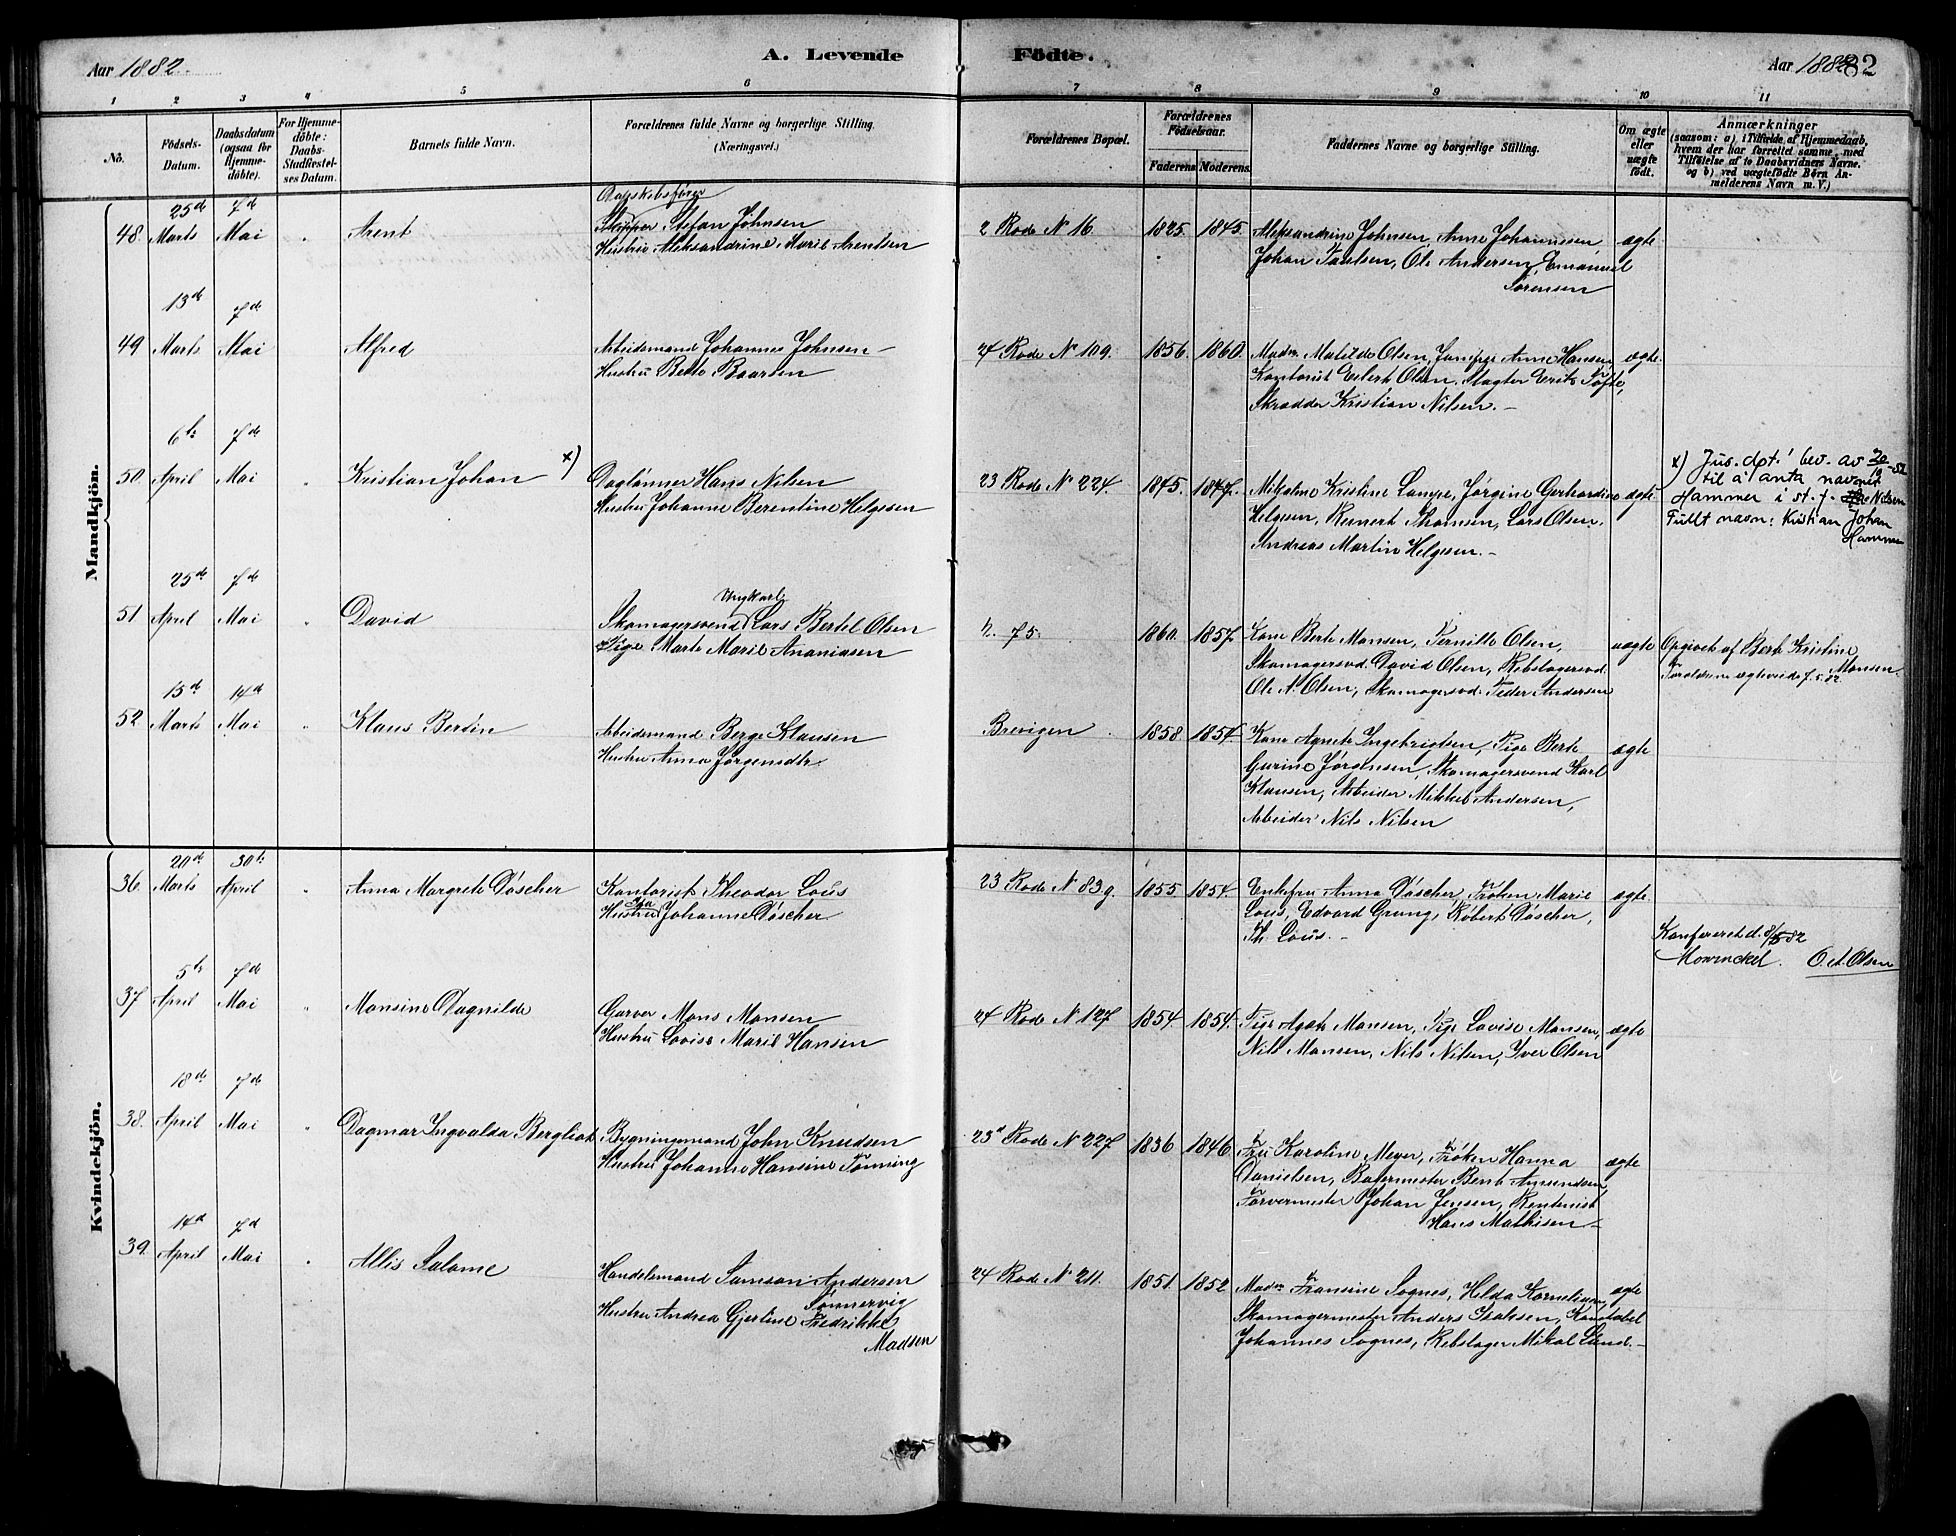 Aar 1882.
A. Levende
Födte.
Aar 1882
82
1 2 3 4 5 6 7 8 9 10 11
No.
Födsels-Datum.
Daabsdatum (ogsaa for Hjemme-döbte).
For Hjemme-döbte: Daabs-Stadfæstel-ses Datum.
Barnets fulde Navn.
Forældrenes fulde Navne og borgerlige Stilling.
(Næringsvei.)
Forældrenes Bopæl.
Forældrenes Födselsaar.
Faderens. Moderens.
Faddernes Navne og borgerlige Stilling.
Om ægte eller uægte födt.
Anmærkninger
(saasom: a) i Tilfælde af Hjemmedaab, hvem der har forrettet samme, med Tilföielse af to Daabsvidners Navne. og b) ved uægtefödte Börn An-melderens Navn m. V.)
Mandkjön.
48. 25de Marts 7de Mai Arent
Dampskibsfører
Skipper Stefan Johnsen
Hustru Aleksandrine Marie Arentsen
2 Rode No 16. 1825. 1845.
Aleksandrine Johnsen, Anne Johannesen
Johan Paulsen, Ole Andersen, Emanuel
Sørensen
ægte
49 13de Marts 7de Mai Alfred
Arbeidsmand Johannes Johnsen
Hustru Berte Baarsen
24 Rode No 109. 1856. 1860.
Madm. Matilde Olsen, Anne Hansen
Kontorist Eilert Olsen, Slagter Erik Tofte,
Skrædder Kristian Nilsen. –
ægte.
50. 6te April 7de Mai Kristian Johan x)
Daglønner Hans Nilsen
Hustru Johanne Berentine Helgesen
23 Rode No 224. 1845. 1847.
Kristine Lampe, Jørgine Gerhardine
Helgesen, Reinert Thomsen, Lars Olsen.
Andreas Martin Helgesen. –
ægte
x) Jus. dpt.' bev. av
til å anta navnet
Hammer i st. f. Nilsen
Fullt navn: Kristian Johan
Hammer
51 25de April 7de Mai David
Ungkarl
Skomagersvend Lars Bertel Olsen
Pige Marte Marie Ananiasen
2. 75. 1860. 1857.
Kone Berte Monsen, Pernille Olsen,
Skomagersvd. David Olsen, Rebslagersvd.
Ole N. Olsen, Skomagersvd. Peder Andersen
uægte
Opgivet af Berte Kristine
Monsen.
52. 15de Marts 14de Mai Klaus Berdin
Arbeidsmand Berge Klausen
Hustru Anna Jørgensdtr.
Brevigen 1858 1854.
Kone Agnete Ingebrigtsen, Pige Berte
Gurine Jørgensen, Skomagersvend Karl
Klausen, Arbeider Mikkel Andersen,
Arbeider Nils Nilsen
ægte
Kvindekjön.
36. 20de Marts 30te April Anna Margrete Döscher
Kontorist Theodor Lous
Hustru Johanne Döscher
23 Rode No 83g. 1855 1854.
Enkefru Anna Döscher, Frøken Marie
Lous, Edvard Grung, Robert Döscher,
Th. Lous. –
ægte.
Konfereret d. 8/5 82
Mowinckel. O. A. Olsen
37. 5te April 7de Mai Monsine Dagnilde
Garver Mons Monsen
Hustru Lovise Marie Hansen
24 Rode No 127 1854 1854.
Pige Agate Monsen, Pige Lovise Monsen,
Nils Monsen, Nils Nilsen, Iver Olsen
ægte
38. 18de April 7de Mai Dagmar Ingvalda Bergliot
Bygningsmand John Knudsen
Hustru Johanne Hansine Tønning
23de Rode No 227 1836 1846.
Fru Karoline Meyer, Frøken Hanna
Danielsen, Bagermester Bent Amundsen
Farvermester Johan Jensen, Rentenist
Hans Mathisen –
ægte
39. 14de April 7de Mai Allis Salome
Handelsmand Samson Andersen
Sønnervig
Hustru Andrea Gjertine Fredrikke
Madsen
24 Rode No 211. 1851. 1852
Madm Fransine Sognes, Helda Kornelius,
Skomagermester Anders Isaksen, Konstabel
Johannes Sognes, Rebslager Mikal Lund. –
ægte